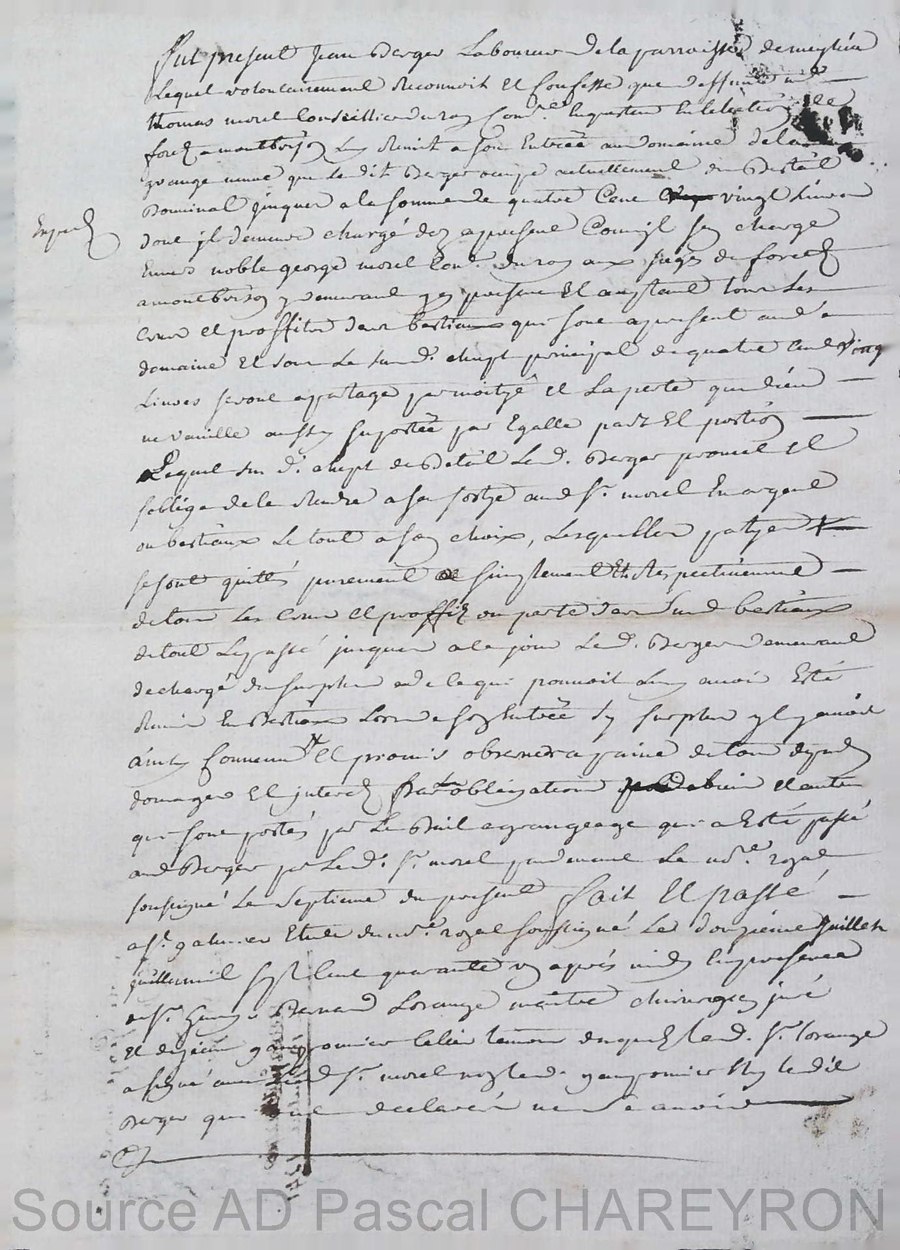 fut present Jean Berger Laboureur de la parroisse de
Lequel volontairement Reconnoit Et Confesse que deffunt
thomas morel Conseillier du roy Enquesteur En
forez a montbrison Luy Remit a son Entrée au domaine de la
grange neuve que Le dit Berger ocupe actuellement du Bestail
nominal jusques a la somme de quatre Cent vingt Livres
dont jl demeure chargé dez apresent Comm'jl se charge
Envers noble george morel Con.er du roy aux de forest
a montbrison y demeurant present Et aceptant tous Les
Crois et proffits desd bestiaux qui sont apresent aud
domaine Et sous Le susd.t cheptz principal de quatre Cent Vingt
Livres seront apartagé par moityé et La perte que dieu
ne vueille aussy suportée par Egalle part Et portion
Lequel sus d.t cheptz de Betail Led. Berger promet Et
s'oblige de le Rendre a sa sortye aud S.r morel En argent
ou bestiaux Le tout a son choix, Lesquelles partyes
se sont quittés purement Simplement Et Respectivement
de tous Les Crois Et proffitz ou perte desd bestiaux
de tout Le passé jusques a ce jour Led. Berger demeurant
dechargé du surplus de ce qui pouvoit Luy avoir Esté
Remis En Bestiaux Lors de son Entrée sy surplus yl y avoit
ainsy Convenu Et promis observer a paine de tous depens
domages Et jnterest obligations de biens Et autres
qui sont portés par Le Bail a grangeage qui a Esté passé
aud Berger par Led. S.r morel pardevant Le no.re royal
soussigné Le septieme du present fait Et passé
a S.t galmier Etude du no.re royal soussigné Le douzieme Juillet
mil sept Cent quarante apres midy En presence
de S.r Bernard Lorange maitre chirurgien juré
Et de temoins desquels led. S.r Lorange
a signé avec led S.r morel non led. ny le dit
Berger qui ont declaré ne Sçavoir
Source AD Pascal CHAREYRON